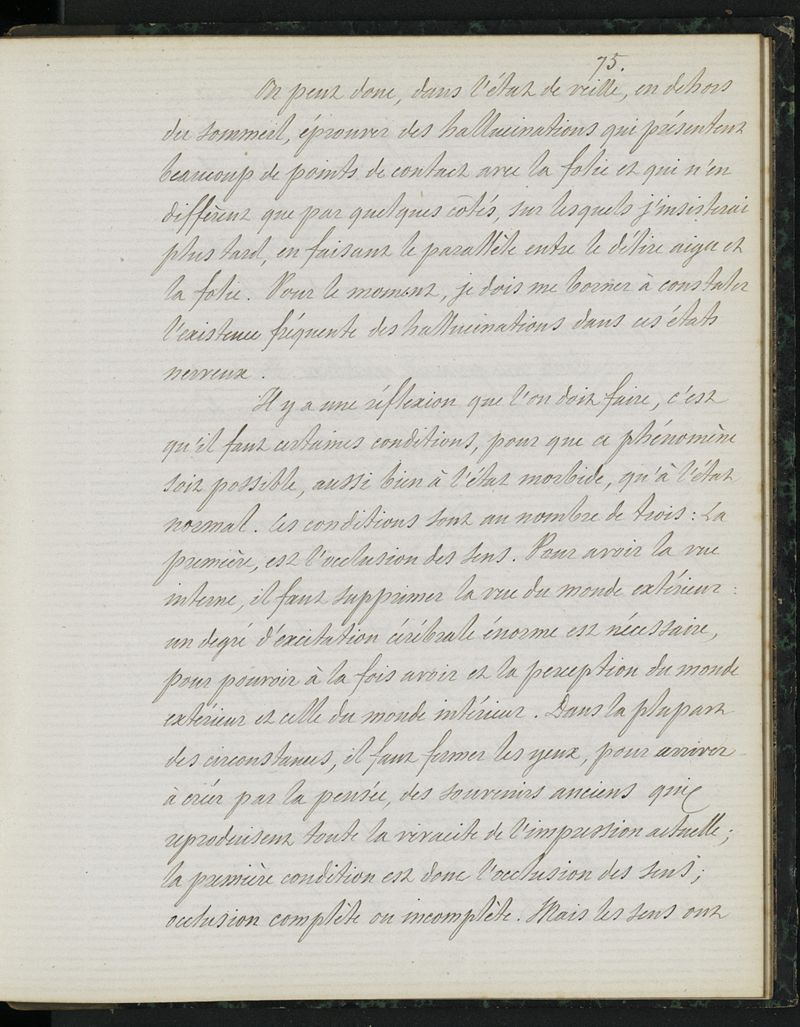 75.
On peut donc, dans l'état de veille, en dehors
du sommeil, éprouver des hallucinations qui présentent
beaucoup de points de contact avec la folie et qui n'en
diffèrent que par quelques côtés, sur lesquels j'insisterai
plus tard, en faisant le parallèle entre le délire aigu et
la folie. Pour le moment, je dois me borner à constater
l'existence fréquente des hallucinations dans ces états
nerveux.
Il y a une réflexion que l'on doit faire, c'est
qu'il faut certaines conditions, pour que ce phénomène
soit possible, aussi bien à l'état morbide, qu'à l'état
normal. Ces conditions sont au nombre de trois : La
première, est l'occlusion des sens. Pour avoir la vue
interne, il faut supprimer la vue du monde extérieur :
un degré d'excitation cérébrale énorme est nécessaire,
pour pouvoir à la fois avoir et la perception du monde
extérieur et celle du monde intérieur. Dans la plupart
des circonstances, il faut fermer les yeux, pour arriver
à créer par la pensée, des souvenirs anciens qui
reproduisent toute la vivacité de l'impression actuelle ;
la première condition est donc l'occlusion des sens ;
occlusion complète ou incomplète. Mais les sens ont